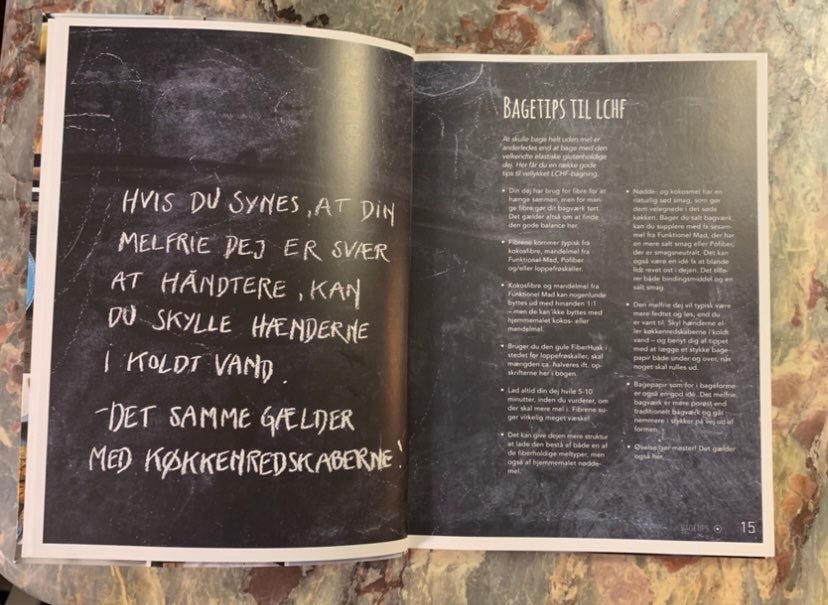 HVIS DU SYNES, AT DIN
MELFRIE DEJ ER SVÆR
AT HÅNDTERE, KAN
DU SKYLLE HÆNDERNE
I KOLDT VAND.
-DET SAMME GÆLDER
MED KØKKENREDSKABERNE!
BAGETIPS TIL LCHF
At skulle bage helt uden mel er
anderledes end at bage med den
velkendte elastiske glutenholdige
dej. Her får du en række gode
tips til vellykket LCHF-bagning.
• Din dej har brug for fibre for at
hænge sammen, men for man-
ge fibre gør dit bagværk tørt.
Det gælder altså om at finde
den gode balance her.
• Fibrene kommer typisk fra
kokosfibre, mandelmel fra
Funktionel Mad, Pofiber
og/eller loppefrøskaller.
• Kokosfibre og mandelmel fra
Funktionel Mad kan nogenlunde
byttes ud med hinanden 1:1
– men de kan ikke byttes med
hjemmemalet kokos- eller
mandelmel.
• Bruger du den gule FiberHusk i
stedet for loppefrøskaller, skal
mængden ca. halveres ift. op-
skrifterne her i bogen.
• Lad altid din dej hvile 5-10
minutter, inden du vurderer, om
der skal mere mel i. Fibrene su-
ger virkelig meget væske!
• Det kan give dejen mere struktur
at lade den bestå af både en af
de fiberholdige meltyper, men
også af hjemmemalet nødde-
mel.
• Nødde- og kokosmel har en
naturlig sød smag, som gør
dem velegnede i det søde
køkken. Bager du salt bagværk,
kan du supplere med fx sesam-
mel fra Funktionel Mad, der har
en mere salt smag eller Pofiber,
der er smagsneutralt. Det kan
også være en idé fx at blande
lidt revet ost i dejen. Det tilfø-
rer både bindingsmiddel og en
salt smag.
• Den melfrie dej vil typisk være
mere fedtet og løs, end du
er vant til. Skyl hænderne el-
ler køkkenredskaberne i koldt
vand – og benyt dig af tippet
med at lægge et stykke bage-
papir både under og over, når
noget skal rulles ud.
• Bagepapir som for i bageforme
er også en god idé. Det melfrie
bagværk er mere porøst end
traditionelt bagværk og går
nemmere i stykker på vej ud af
formen.
• Øvelse gør mester! Det gælder
også her.
BAGETIPS 15